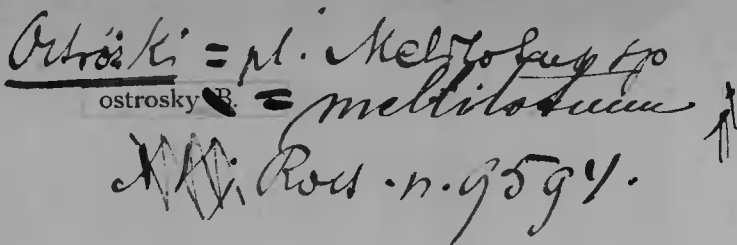 Ostróżki = pl. Melilotus sp
ostrosky B. = mellilotum
Ros. n. 9594.